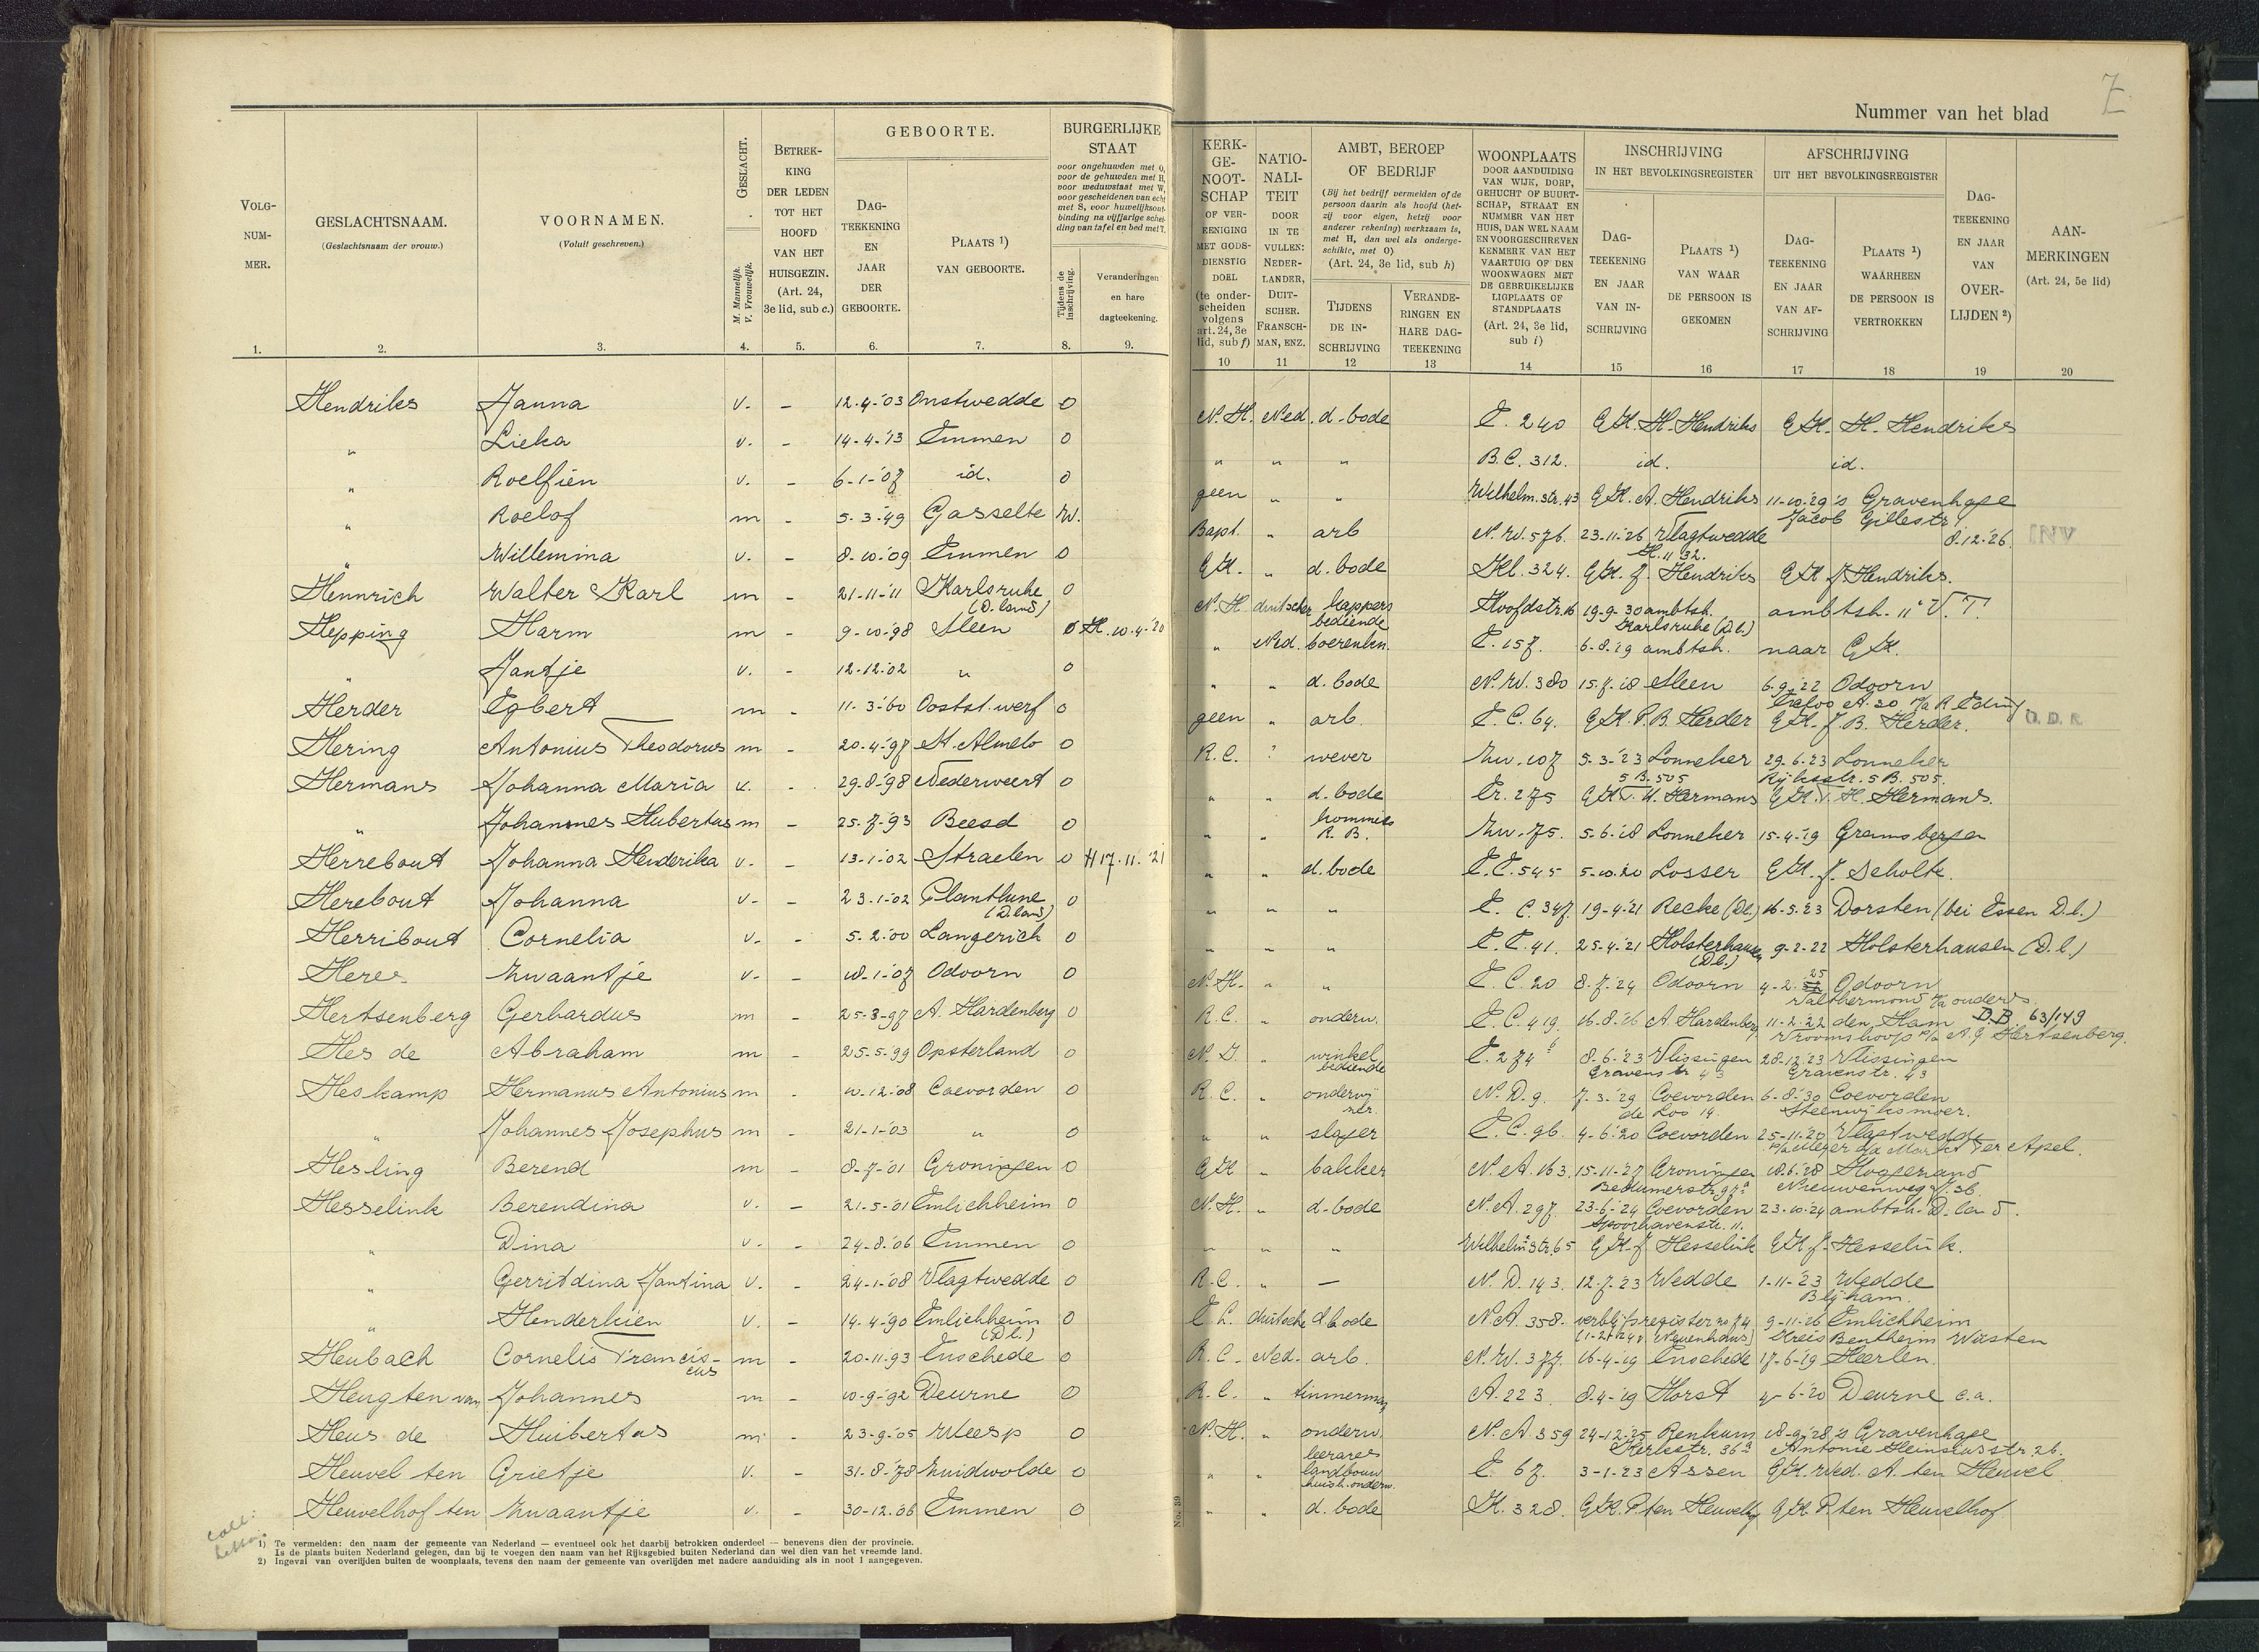 Nummer van het blad
VOLG-NUMMER.
GESLACHTSNAAM.
(Geslachtsnaam der vrouw.)
VOORNAMEN.
(Voluit geschreven.)
GESLACHT.
M. Mannelijk.
V. Vrouwelijk.
BETREKKING DER LEDEN TOT HET HOOFD VAN HET HUISGEZIN. (Art. 24, 3e lid, sub c.)
GEBOORTE.
DAGTEEKENING EN JAAR DER GEBOORTE.
PLAATS 1) VAN GEBOORTE.
BURGERLIJKE STAAT
voor ongehuwden met O, voor de gehuwden met H, voor weduwstaat met W, voor gescheidenen van echt met S, voor huwelijksontbinding na vijfjarige scheiding van tafel en bed met T.
Tijdens de inschrijving.
Veranderingen en hare dagteekening.
KERKGENOOTSCHAP OF VEREENIGING MET GODSDIENSTIG DOEL (te onderscheiden volgens art. 24, 3e lid, sub f)
NATIONALITEIT DOOR IN TE VULLEN: NEDERLANDER, DUITSCHER. FRANSCHMAN, ENZ.
AMBT, BEROEP OF BEDRIJF
(Bij het bedrijf vermelden of de persoon daarin als hoofd (hetzij voor eigen, hetzij voor anderer rekening) werkzaam is, met H, dan wel als ondergeschikte, met O)
(Art. 24, 3e lid, sub h)
TIJDENS DE INSCHRIJVING
VERANDERINGEN EN HARE DAGTEEKENING
WOONPLAATS DOOR AANDUIDING VAN WIJK, DORP, GEHUCHT OF BUURTSCHAP, STRAAT EN NUMMER VAN HET HUIS, DAN WEL NAAM EN VOORGESCHREVEN KENMERK VAN HET VAARTUIG OF DEN WOONWAGEN MET DE GEBRUIKELIJKE LIGPLAATS OF STANDPLAATS (Art. 24, 3e lid, sub i)
INSCHRIJVING IN HET BEVOLKINGSREGISTER
DAGTEEKENING EN JAAR VAN INSCHRIJVING
PLAATS 1) VAN WAAR DE PERSOON IS GEKOMEN
AFSCHRIJVING UIT HET BEVOLKINGSREGISTER
DAGTEEKENING EN JAAR VAN AFSCHRIJVING
PLAATS 1) WAARHEEN DE PERSOON IS VERTROKKEN
DAGTEEKENING EN JAAR VAN OVERLIJDEN 2)
AANMERKINGEN (Art. 24, 5e lid)
1. 2. 3. 4. 5. 6. 7. 8. 9. 10 11 12 13 14 15 16 17 18 19 20
Hendriks Janna v. - 12.4-'03 Onstwedde O N.H. Ned. d.bode E. 240 G.K. H. Hendriks G.K. H. Hendriks
" Lieka v. - 14-4-'13 Emmen O " " " B.C. 312. id. id.
" Roelfien v. - 6-1-'07 id. O geen " " Wilhelm.str.43 G.K. A. Hendriks 11-10-'29 's Gravenhage
Jacob Gillestr
" Roelof m - 5-3-'49 Gasselte W. Bapt. " arb N.W. 576. 23-11-'26 Vlagtwedde 8.12-'26. INV
H. 1132.
" Willemina v. - 8-10-'09 Emmen O G.K. " d.bode Kl. 324. G.K. J. Hendriks G.K. J. Hendriks.
Hennrich Walter Karl m - 21-11-'11 Karlsruhe (D.land) O N.H. duitscher kappersbediende Hoofdstr.16 19-9-30 ambtsh. Karlsruhe (D.l.) ambtsh. V.T.
Hepping Harm m - 9-10-'98 Sleen O H. 10.4-'20 " Ned. boerenkn. E. 157. 6-8-'19 ambtsh. naar G.K.
" Jantje v. - 12-12-'02 " O " " d.bode N.W. 380 15-7-'18 Sleen 6-9-'22 Odoorn
Herder Egbert m - 11-3-'60 Ooststwerf O geen " arb. E.C. 64. G.K. P.B. Herder G.K. J.B. Herder.
Hering Antonius Theodorus m - 20-4-'97 St. Almelo O R.C. ? wever Zw. 107 5-3-'23 Lonneker 29-6-'23 Lonneker
5 B. 505 Rijksstr. 5 B. 505.
Hermans Johanna Maria v. - 29-8-'98 Nederweert O " " d.bode Er. 275 G.K. Hermans G.K. Hermans.
" Johannes Hubertus m - 25-7-'93 Beesd O " " kommies R.B. Zw. 75. 5-6-'18 Lonneker 15-4-'19 Gramsbergen
Herrebout Johanna Henderika v. - 13-1-'02 Straelen O H 17.11.'21 " " d.bode E.E. 545 5-10-20 Losser G.K. J. Scholte.
Herebout Johanna v. - 23-1-'02 Planthune (D.land) O " " " E.C. 347. 19-4-'21 Recke (Dl.) 16-5-'23 Dorsten (bei Essen D.l.)
Herribout Cornelia v. - 5-2-'00 Langerich O " " " E.E. 41. 25-4-'21 Holsterhausen (D.l.) 9-2-22 Holsterhausen (D.l.)
Heres Zwaantje v. - 10-1-'07 Odoorn O N.H. " " E.C. 20 8-7-'24 Odoorn 4-2-25 Odoorn
Valthermond p/a ouders.
Hertsenberg Gerhardus m - 25-3-97 A. Hardenberg O R.C. " onderw. E.C. 419. 16-8-'16 A. Hardenberg 11-2-'22 den Ham D.B. 63/149
Vroomshoop p/a A.G. Hertsenberg.
Hes de Abraham m - 25-5-'99 Opsterland O N.I. " winkelbediende E. 274 b 8-6-'23 Vlissingen 28-12-'23 Vlissingen
Gravenstr 43 Gravenstr. 43
Heskamp Hermanus Antonius m - 10-12-'08 Coevorden O R.C. " onderwijzer. N.D. 9. 7-3-'29 Coevorden 6-8-'30 Coevorden
de Loo 14. Steenwijksmoer.
" Johannes Josephus m - 21-1-'03 " O " " slager E.C. 96. 4-6-'20 Coevorden 25-11-'20 Vlagtwedde
Ter Apel.
Hesling Berend m - 8-7-'01 Groningen O G.K. " bakker N.A. 163. 15-11-'27 Groningen 18-6-'28 Hoogezand
Bedumerstr. 97a Nieuwenweg
Hesselink Berendina v. - 21-5-'01 Emlichheim O N.H. " d.bode N.A. 297. 23-6-'24 Coevorden 23-10-24 ambtsh. D.land.
Spoorhavenstr. 11.
" Dina v. - 24-8-'06 Emmen O " " " Wilhelm.str. 65 G.K. J. Hesselink G.K. J. Hesselink.
" Gerritdina Jantina v. - 24-1-'08 Vlagtwedde O R.C. " — N.D. 143. 12-7-'23 Wedde 1-11-'23 Wedde
Blijham.
" Henderkien v. - 14-4-'90 Emlichheim (D.l.) O E.L. duitsche d.bode N.A. 358. verblijfsregister no 74 9-11-26 Emlichheim
Kreis Bentheim
Heubach Cornelis Franciscus m - 20-11-93 Enschede O R.C. Ned. arb. N.W. 377. 16-4-19 Enschede 17-6-19 Heerlen.
Heugten van Johannes m - 10-9-'92 Deurne O R.C. " timmerman A. 223. 8-4-'19 Horst 4-6-'20 Deurne c.a.
Heus de Huibertus m - 23-9-'05 Weesp O N.H. " onderw. N.A. 359 24-12-'25 Renkum 18-9-'28 's Gravenhage
Kerkstr. 36a Antonie Heinsiusstr. 26.
Heuvel ten Grietje v. - 31-8-'78 Zuidwolde O " " leerares landbouwhuish.onderw. E. 67. 3-1-'23 Assen G.K. Wed. A. ten Heuvel
Heuvelhof ten Zwaantje v. - 30-12-'06 Emmen O " " d.bode K. 328. G.K. P. ten Heuvelhof G.K. P. ten Heuvelhof
1) Te vermelden: den naam der gemeente van Nederland — eventueel ook het daarbij betrokken onderdeel — benevens dien der provincie.
Is de plaats buiten Nederland gelegen, dan bij te voegen den naam van het Rijksgebied buiten Nederland dan wel dien van het vreemde land.
2) Ingeval van overlijden buiten de woonplaats, tevens den naam der gemeente van overlijden met nadere aanduiding als in noot 1 aangegeven.
No. 39